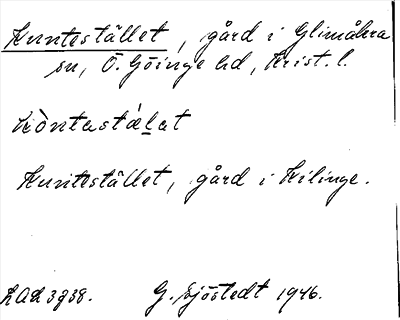 Kuntestället, gård i Glimåkra
sn, Ö. Göinge hd, Krist. l.
kòntastä́lat
Kuntestället, gård i Kilinge.
G. Sjöstedt 1946.